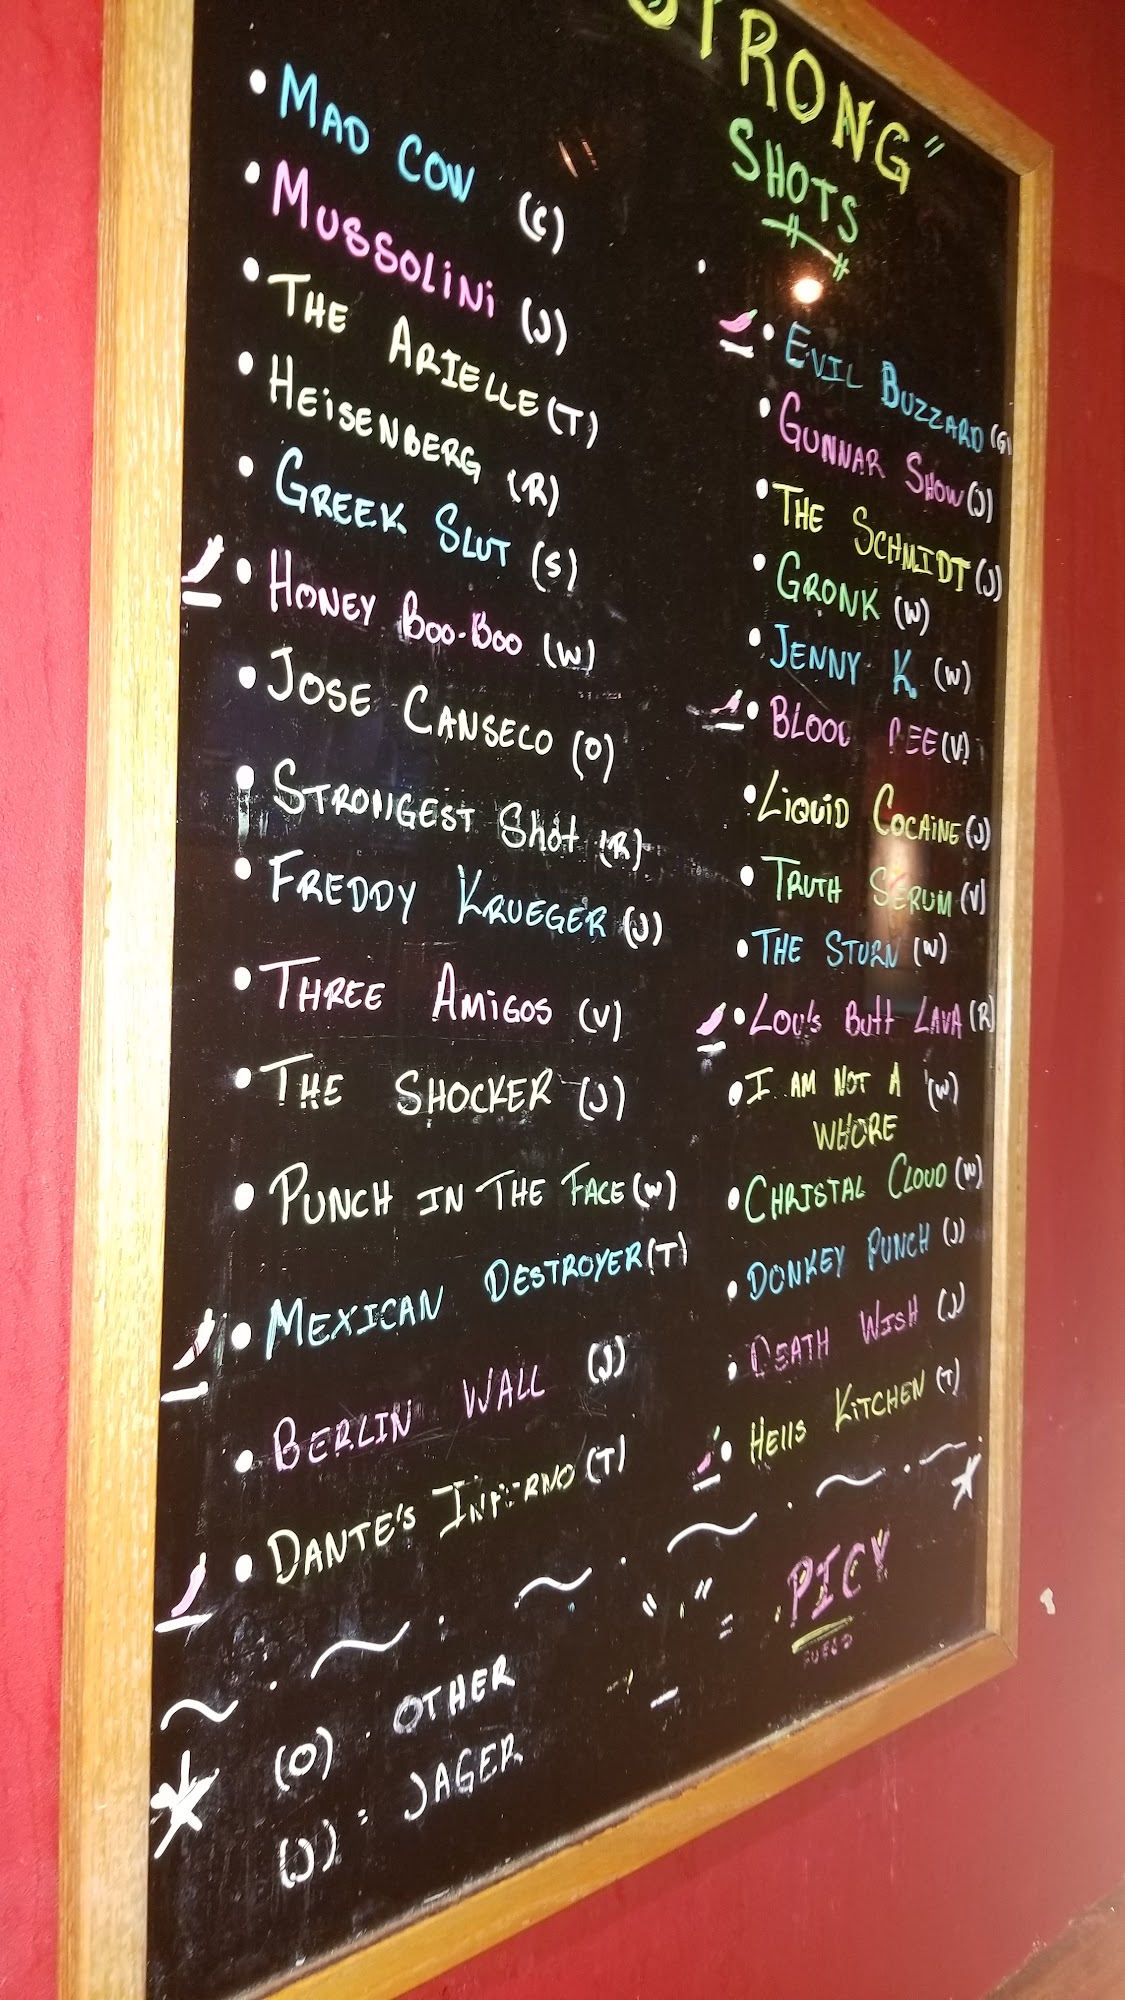 STRONG"
SHOTS
• MAD COW (C)
• MUSSOLINI (J)
• THE ARIELLE (T)
• HEISENBERG (R)
• GREEK SLUT (S)
• HONEY BOO-BOO (W)
• JOSE CANSECO (O)
• STRONGEST Shot (R)
• FREDDY KRUEGER (J)
• THREE AMIGOS (V)
• THE SHOCKER (J)
• PUNCH IN THE FACE (W)
• MEXICAN DESTROYER (T)
• BERLIN WALL (J)
• DANTE'S INFERNO (T)
• EVIL BUZZARD (G)
• GUNNAR SHOW (J)
• THE SCHMIDT (J)
• GRONK (W)
• JENNY K. (W)
• BLOOD PEE (V)
• LIQUID COCAINE (J)
• TRUTH SERUM (V)
• THE STURN (W)
• LOU'S BUTT LAVA (R)
• I AM NOT A (W)
WHORE
• CHRISTAL CLOUD (W)
• DONKEY PUNCH (J)
• DEATH WISH (J)
• HELLS KITCHEN (T)
(O) : OTHER
(J) : JAGER
" " = PICY